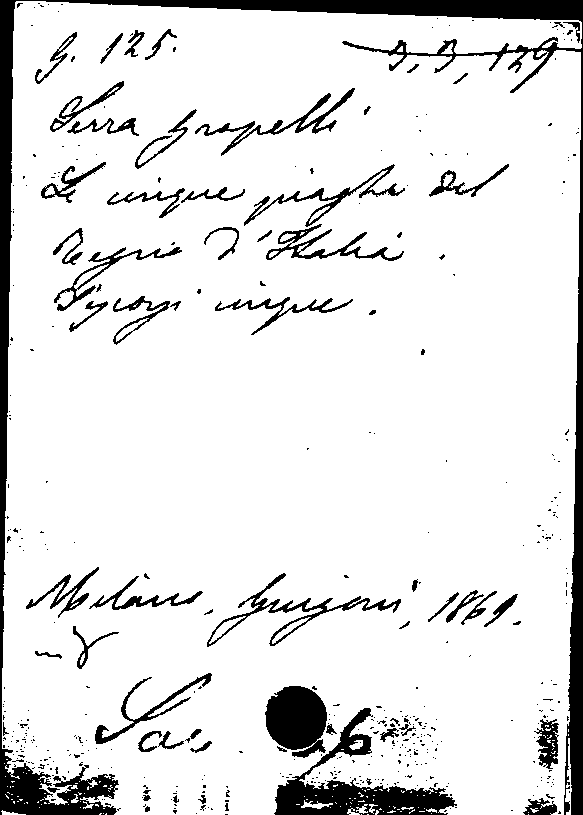 G. 125.
3, 3, 129
Serra Gropelli
Le cinque piaghe del
Regno d'Italia.
Discorsi cinque.
Milano, Guigoni, 1869.